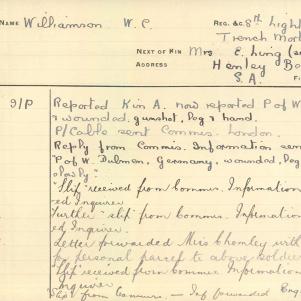 NAME Williamson W. C. REG. &C. 8th Light
Trench Mort
NEXT OF KIN Mrs E. Ling (
ADDRESS Henley Be
S.A.
9/P Reported Kin A. now reported P of W
& wounded. gunshot, leg & hand.
P/Cable sent Commis. London.
Reply from Commis. Information sen
P of W. Dulmen, Germany, wounded, leg
slowly"
"Slip" received from Commrs. Information
ed Inquirer
Further "slip" from Commrs. Information
ed Inquirer.
Letter forwarded Miss Chomley with
for personal parcel to above soldier
Slip received from Commrs. Information
Inquirer
Slip from Commrs. — Inf forwarded Enq